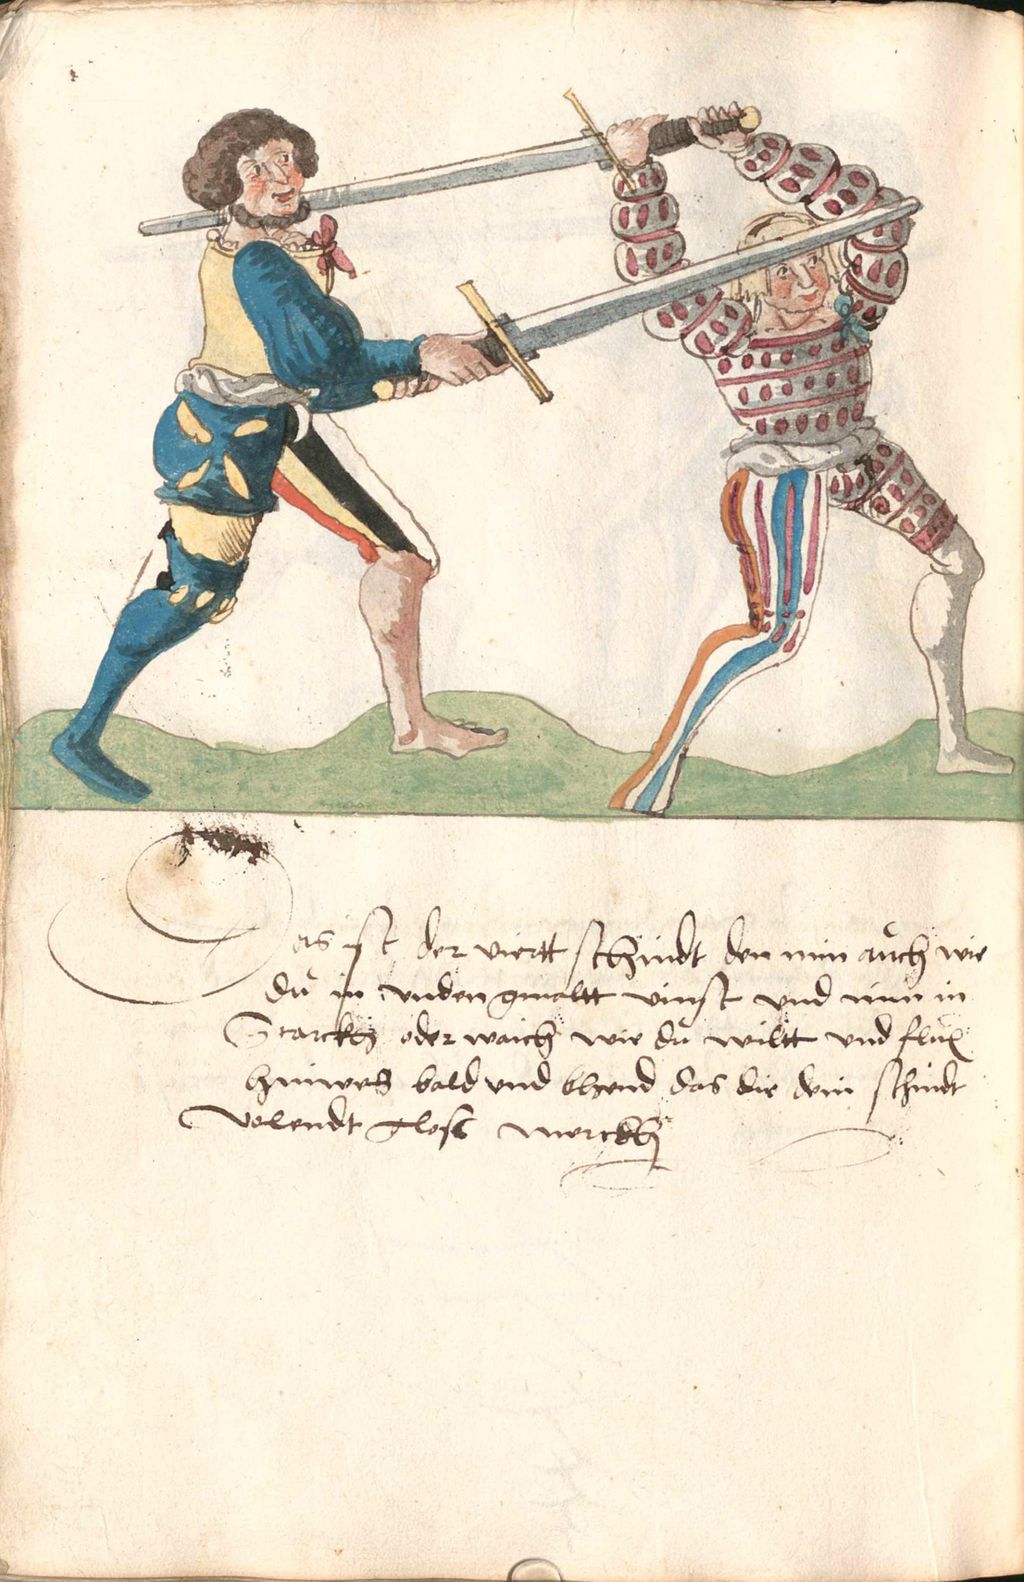 Das ist der viertt schnidt den nim auch wie
du in unden gmaltt vinst und nim in
Starckh oder waich wie du wiltt und flux
hinweg bald und bhend das die dein schnidt
volendt glost merckh